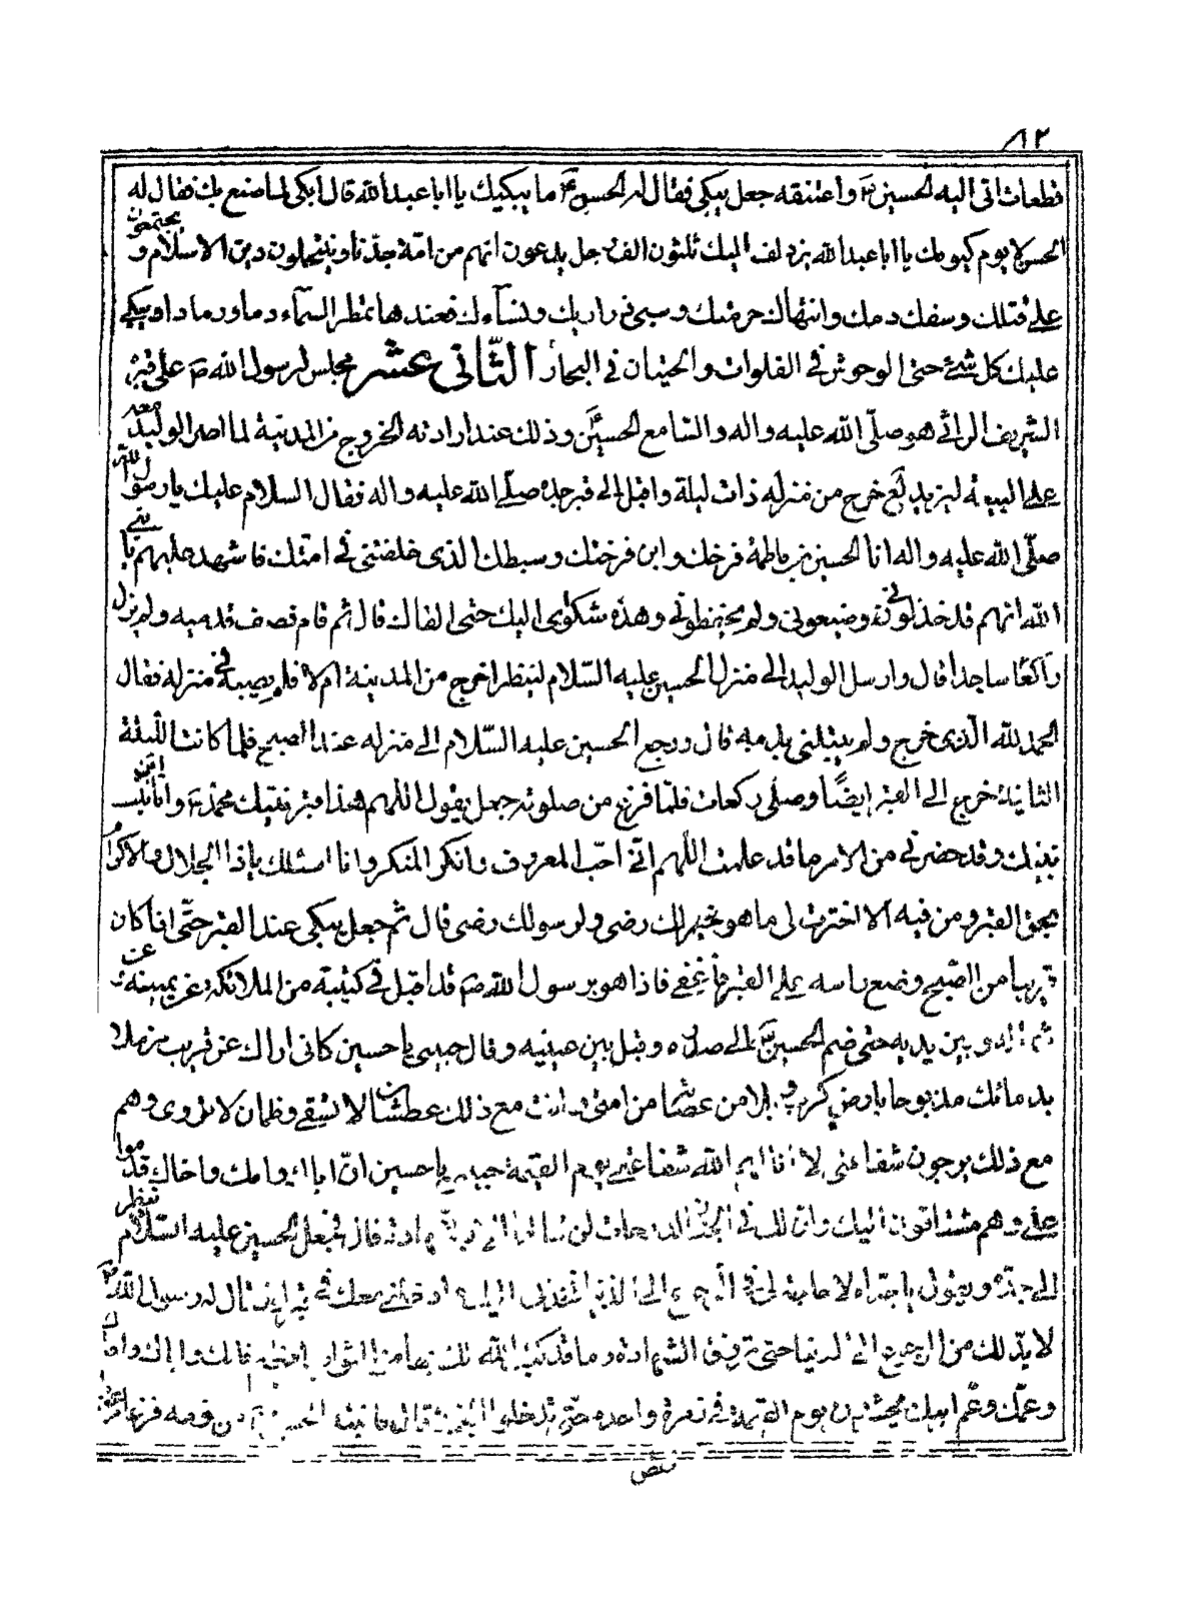 ٨٢
قطعات اتى اليه الحسين ع واعتنقه جعل يبكى فقال له الحسن ع ما يبكيك يا ابا عبد الله قال ابكى لما صنع بك فقال له
الحسن لا يوم كيومك يا ابا عبد الله يزدلف اليك ثلثون الف رجل يدعون انهم من امّة جدّنا وينتحلون دين الاسلام و يجتمعون
على قتلك وسفك دمك وانتهاك حرمتك وسبى ذراريك ونسآءك فعندها تمطر السّمآء دما ورمادا ويبكى
عليك كل شئ حتى الوحوش فى الفلوات والحيتان فى البحار الثّانى عشر مجلس لرسول الله ص على قبره
الشريف الراثى هو صلّى الله عليه واله والسامع الحسين ع وذلك عند ارادته الخروج من المدينة لما اصر الوليد
على البيعة ليزيد لع خرج من منزله ذات ليلة واقبل الى قبر جده صلّى الله عليه واله فقال السلام عليك يا رسول الله
صلّى الله عليه واله انا الحسين بن فاطمة فرخك وابن فرختك وسبطك الذى خلفتنى فى امتك فاشهد عليهم يا نبى
الله انهم قد خذلونى وضيعونى ولم يحفظونى وهذه شكواى اليك حتى القاك قال ثم قام فصف قدميه ولم يزل
راكعًا ساجدا قال وارسل الوليد الى منزل الحسين عليه السّلام لينظر اخرج من المدينة ام لا فلم يصبه فى منزله فقال
الحمد لله الّذى خرج ولم يبتلنى بدمه قال ورجع الحسين عليه السّلام الى منزله عند الصبح فلما كانت اللّيلة
الثانية خرج الى القبر ايضًا وصلى ركعات فلمّا فرغ من صلوته جعل يقول اللهم هذا قبر نبيّك محمد ص وانا ابن بنت
نبيّك وقد حضرنى من الامر ما قد علمت اللّهم انّى احبّ المعروف وانكر المنكر وانا اسئلك يا ذا الجلال والاكرام
بحق القبر ومن فيه الا اخترت لى ما هو لك رضى ولرسولك رضى قال ثم جعل يبكى عند القبر حتّى اذا كان
قريبا من الصّبح وضع راسه على القبر فاغفى فاذا هو برسول الله ص قد اقبل فى كتيبة من الملائكة عن يمينه وعن
وبين يديه حتى ضم الحسين ع الى صدره وقبل بين عينيه وقال حبيبى يا حسين كانى اراك عن قريب مرملا
بدمائك مذبوحا بارض كرب وبلا من عصابة من امتى وانت مع ذلك عطشان لا تسقى وظمان لا تروى وهم
مع ذلك يرجون شفاعتى لا انالهم الله شفاعتى يوم القيمة حبيبى يا حسين انّ اباك وامك واخاك قدموا
علىّ وهم مشتاقون اليك وان لك فى الجنان لدرجات لن تنالها الّا بالشهادة قال فجعل الحسين عليه السّلام ينظر
الى جدّه ويقول يا جدّاه لا حاجة لى فى الرجوع الى الدنيا فخذنى اليك وادخلنى معك فى قبرك فقال له رسول الله ص
لا بدّ لك من الرجوع الى الدنيا حتى ترزق الشهادة وما قد كتب الله لك فيها من الثواب العظيم فانك واباك واخاك
وعمّك وعمّ ابيك تحشرون يوم القيمة فى زمرة واحدة حتّى تدخلوا الجنّة قال فانتبه الحسين ع من نومه فزعا